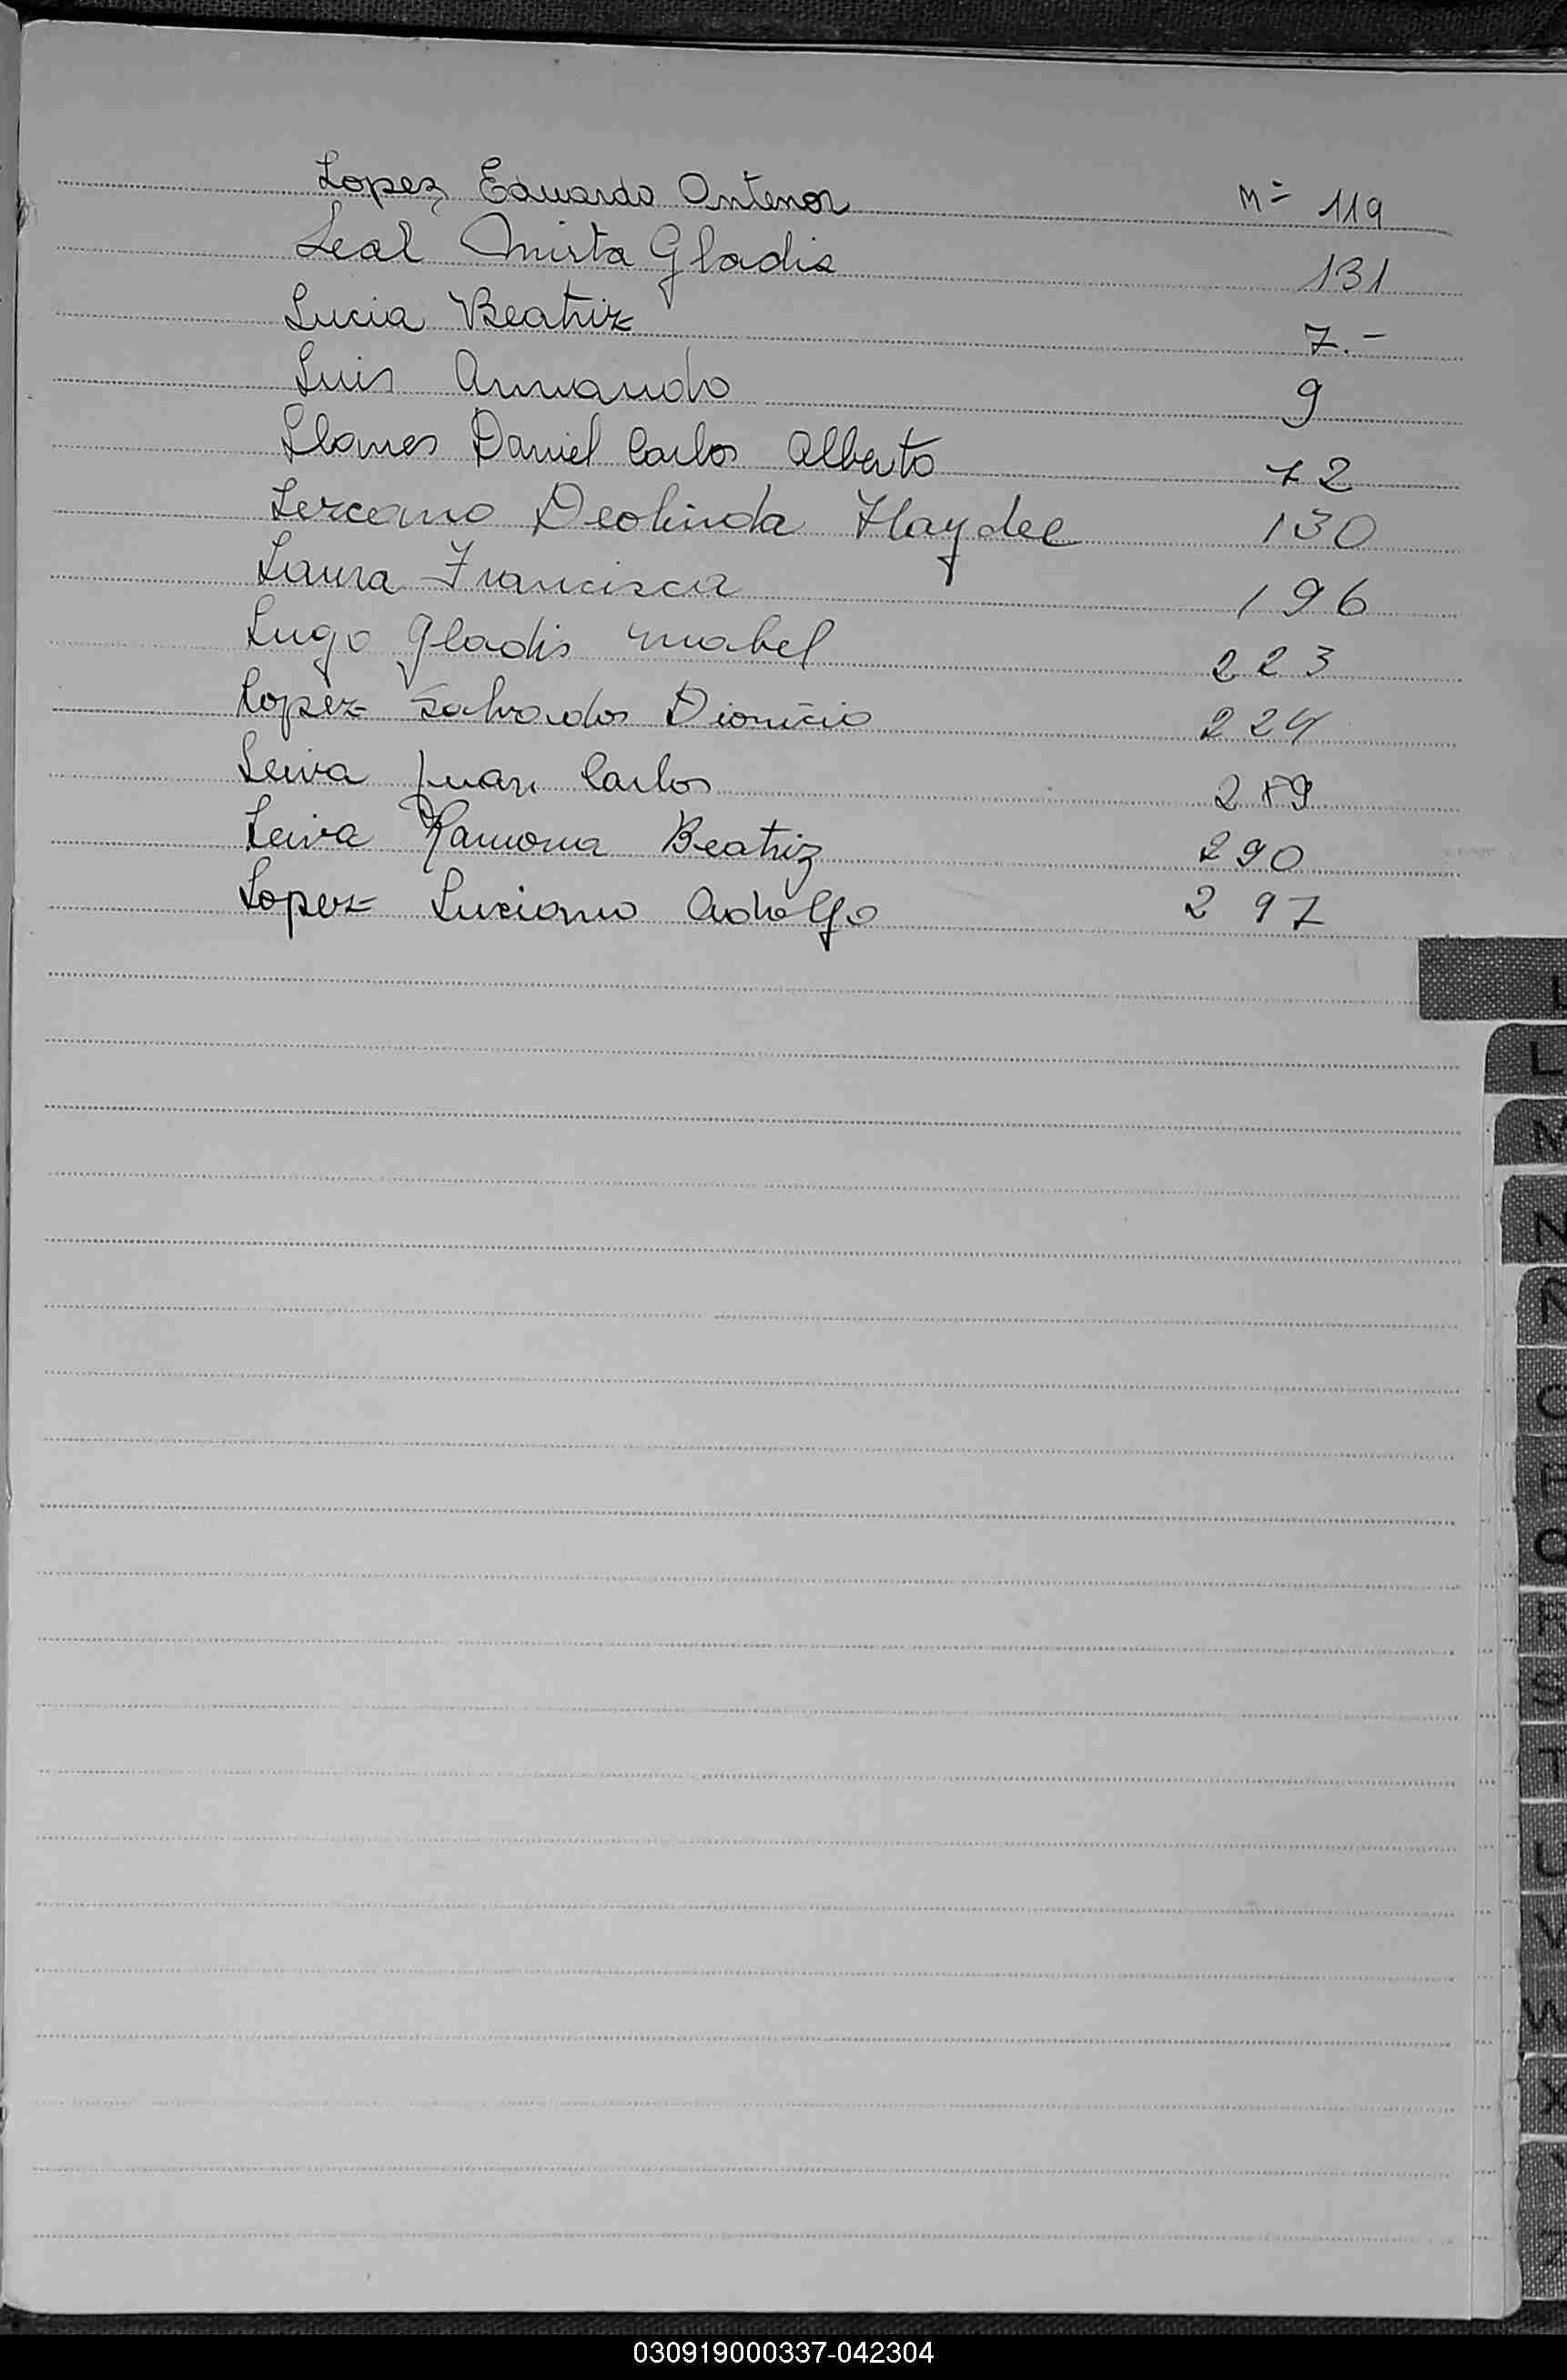 Lopez Eduardo Antenor Nº 119
Leal Mirta Gladis 131
Lucia Beatriz 7.-
Luis Armando 9
Llanes Daniel Carlos Alberto 72
Lezcano Deolinda Haydee 130
Laura Francisca 196
Lugo Gladis Mabel 223
Lopez Salvador Dionicio 224
Leiva Juan Carlos 289
Leiva Ramona Beatriz 290
Lopez Luciano Adolfo 297
L
L
M
N
Ñ
O
P
Q
R
S
T
U
V
W
X
Y
Z
030919000337-042304